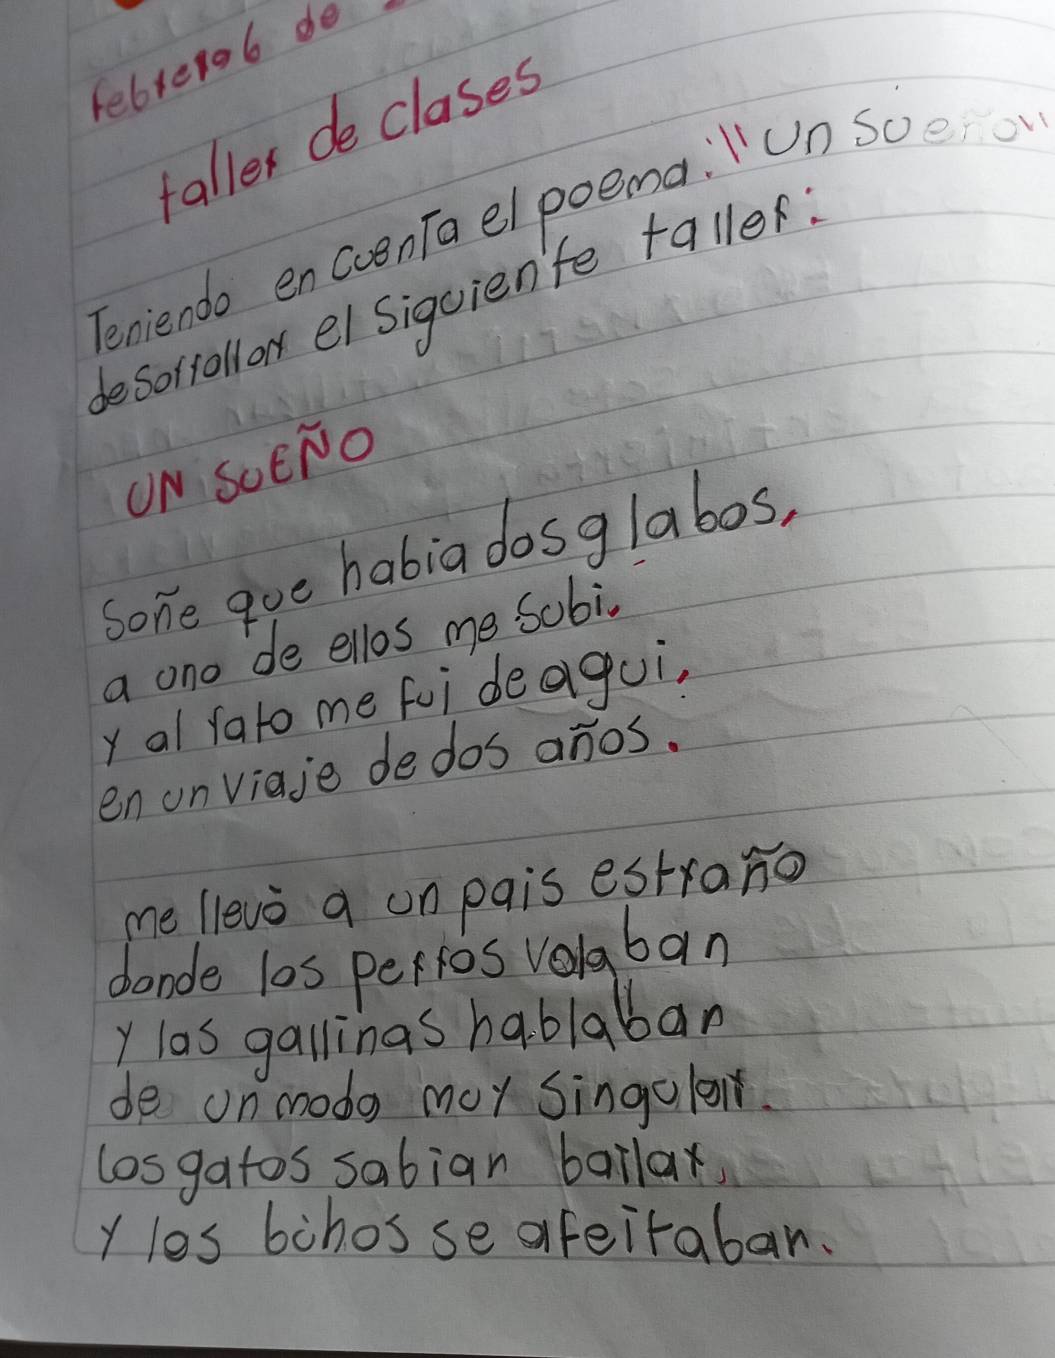 febrero 6 de
taller de clases
Teniendo en cuenTa el poema: "Un Sueño"
desorrollar el Siguiente taller:
UN SUEÑO
Soñe que habia dos glabos,
a uno de ellos me Subi.
y al rato me fui de aqui,
en un viaje de dos años.
me llevò a un pais estraño
donde los perros volaban
y las gallinas hablaban
de un modo muy Singular.
los gatos sabian bailar,
y los búhos se afeitaban.